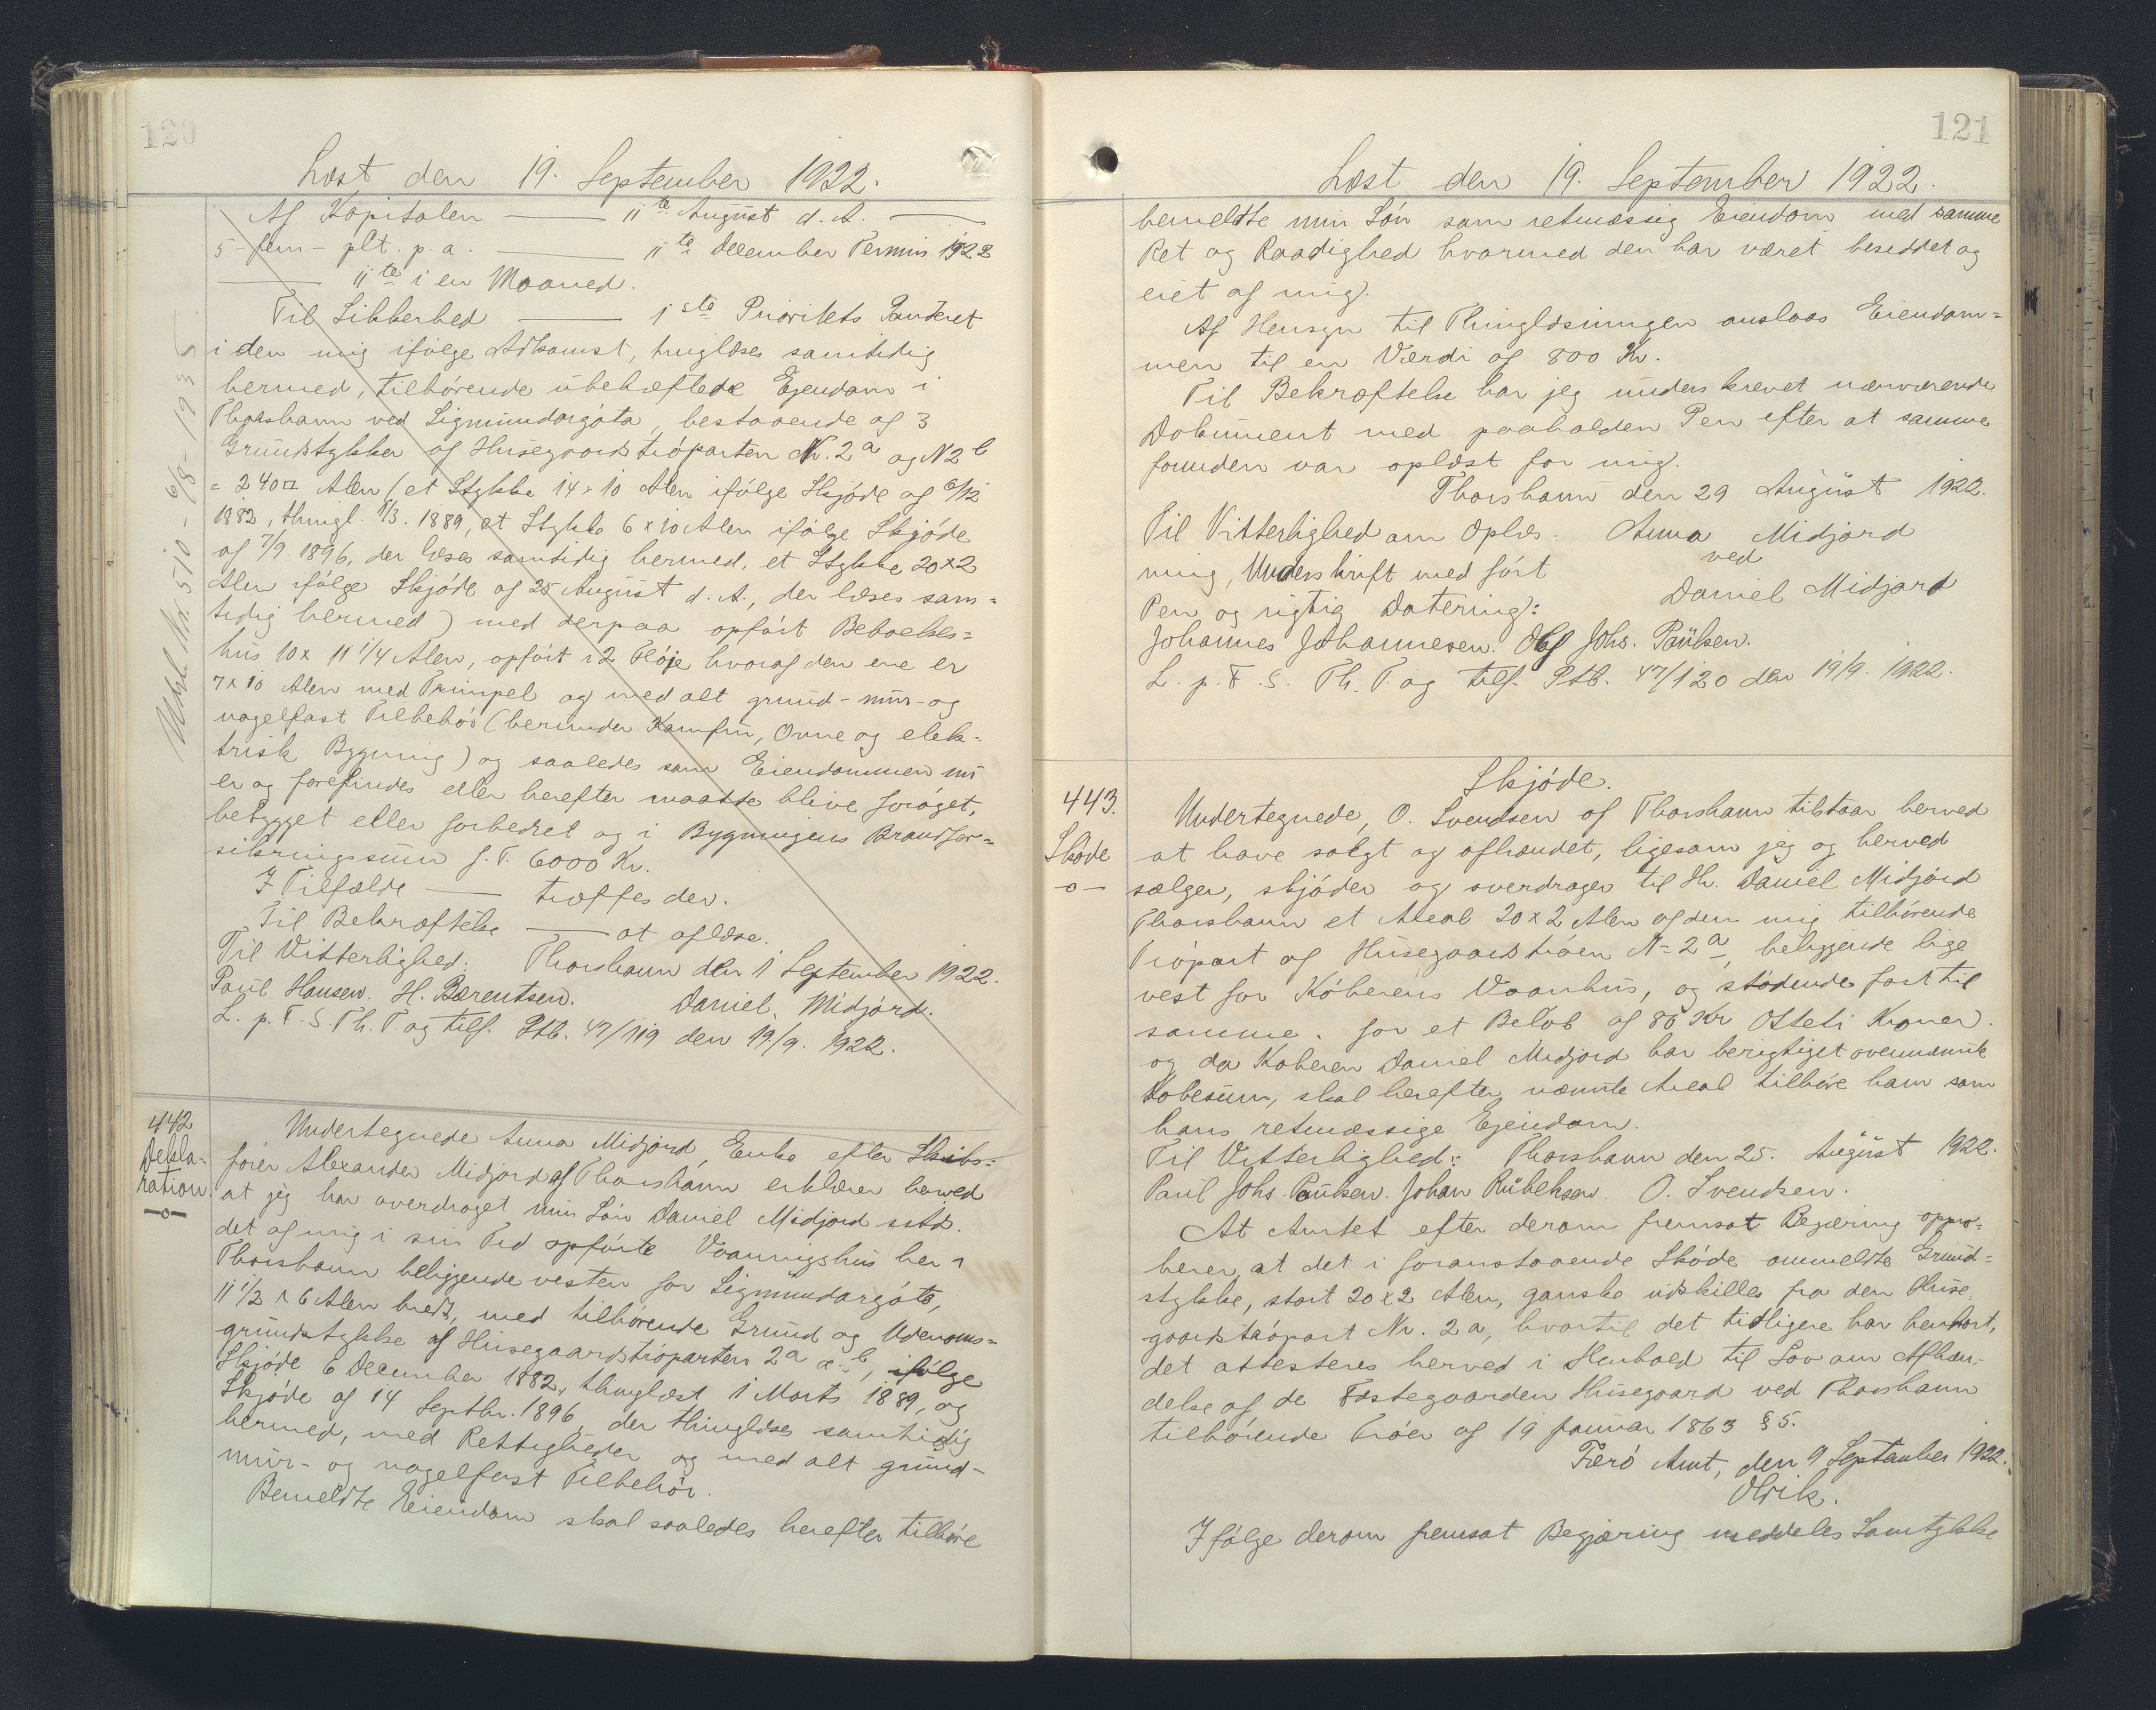 120
Læst den 19. September 1922.
Af Kapitalen — 11te August d. A. —
5 - fem - pCt. p. a. — 11te December Termin 1922
— 11te i en Maaned.
Til Sikkerhed — 1ste Prioritets Panteret
i den mig ifølge Adkomst, tinglæses samtidig
hermed, tilhørende ubehæftede Ejendom i
Thorshavn ved Sigmundargøta, bestaaende af 3
Grundstykker af Husegaards trøparten Nr. 2a og N 2b
= 240 □ Alen (et Stykke 14 x 10 Alen ifølge Skjøde af 6/12
1882, thingl. 1/3. 1889, et Stykke 6 x 10 Alen ifølge Skjøde
af 7/9. 1896, der læses samtidig hermed, et Stykke 20 x 2
Alen ifølge Skjøde af 25 August d. A., der læses sam=
tidig hermed) med derpaa opført Beboelses=
hus 10 x 11 1/4 Alen, opført i 2 Fløje hvoraf den ene er
7 x 10 Alen med Trimpel og med alt grund- mur- og
nagelfast Tilbehør (herunder Komfur, Ovne og elek=
trisk Bygning) og saaledes som Eiendommen nu
er og forefindes eller herefter maatte blive forøget,
bebygget eller forbedret og i Bygningens Brandfor=
sikringssum f. T. 6000 Kr.
I Tilfælde — træffes der.
Til Bekræftelse — at aflæse.
Til Vitterlighed: Thorshavn den 1 September 1922.
Paul Hansen. H. Bærentsen. Daniel Midjord.
L. p. F. S. Th. T. og tilf. Ptb. 47/119 den 19/9. 1922.
Udsl. Nr. 510 - 6/8 - 1935
442
Dekla=
ration
—o—
Undertegnede Anna Midjord, Enke efter Skibs=
fører Alexander Midjord af Thorshavn erklærer herved
at jeg har overdraget min Søn Daniel Midjord sstd.
det af mig i sin Tid opførte Vaaningshus her i
Thorshavn beliggende vesten for Sigmundargøta,
11 1/2 x 6 Alen bredt, med tilhørende Grund og Udenoms=
grundstykke af Husegaardstrøparten 2a & b, ifølge
Skjøde 6 December 1882, thinglæst 1 Marts 1889, og
Skjøde af 14 Septbr. 1896, der thinglæses samtidig
hermed, med Rettigheder og med alt grund-
mur- og nagelfast Tilbehør.
Bemeldte Eiendom skal saaledes herefter tilhøre
121
Læst den 19. September 1922.
bemeldte min Søn som retmæssig Eiendom med samme
Ret og Raadighed hvormed den har været besiddet og
eiet af mig.
Af Hensyn til Thinglæsningen anslaas Eiendom=
men til en Værdi af 800 Kr.
Til Bekræftelse har jeg underskrevet nærværende
Dokument med paaholden Pen efter at samme
forinden var oplæst for mig.
Thorshavn den 29 August 1922.
Til Vitterlighed om Oplæs= Anna Midjord
ning, Underskrift med ført ved
Pen og rigtig Datering: Daniel Midjord
Johannes Johannesen. Olaf Johs. Paulsen.
L. p. F. S. Th. T. og tilf. Ptb. 47/120 den 19/9. 1922.
443.
Skøde
—o—
Skjøde.
Undertegnede, O. Svendsen af Thorshavn tilstaar herved
at have solgt og afhændet, ligesom jeg og herved
sælger, skjøder og overdrager til Hr. Daniel Midjord
Thorshavn et Areal 20 x 2 Alen af den mig tilhørende
Trøpart af Husegaards trøen N= 2a, beliggende lige
vest for Køberens Vaanhus, og stødende fast til
samme. for et Beløb af 80 Kr Otteti Kroner.
og da Køberen Daniel Midjord har berigtiget ovennævnte
Købesum, skal herefter nævnte Areal tilhøre ham som
hans retmæssige Ejendom.
Til Vitterlighed: Thorshavn den 25. August 1922.
Paul Johs. Paulsen. Johan Rubeksen. O. Svendsen.
At Amtet efter derom fremsat Begæring appro=
berer, at det i foranstaaende Skøde ommeldte Grund=
stykke, stort 20 x 2 Alen, ganske udskilles fra den Huse
gaards trøpart Nr. 2a, hvortil det tidligere har henhørt,
det attesteres herved i Henhold til Lov om Afhæn-
delse af de Fæstegaarden Husegaard ved Thorshavn
tilhørende Trøer af 19 Januar 1863 § 5.
Færø Amt, den 9 September 1922.
Olrik.
Ifølge derom fremsat Begjæring meddeles Samtykke